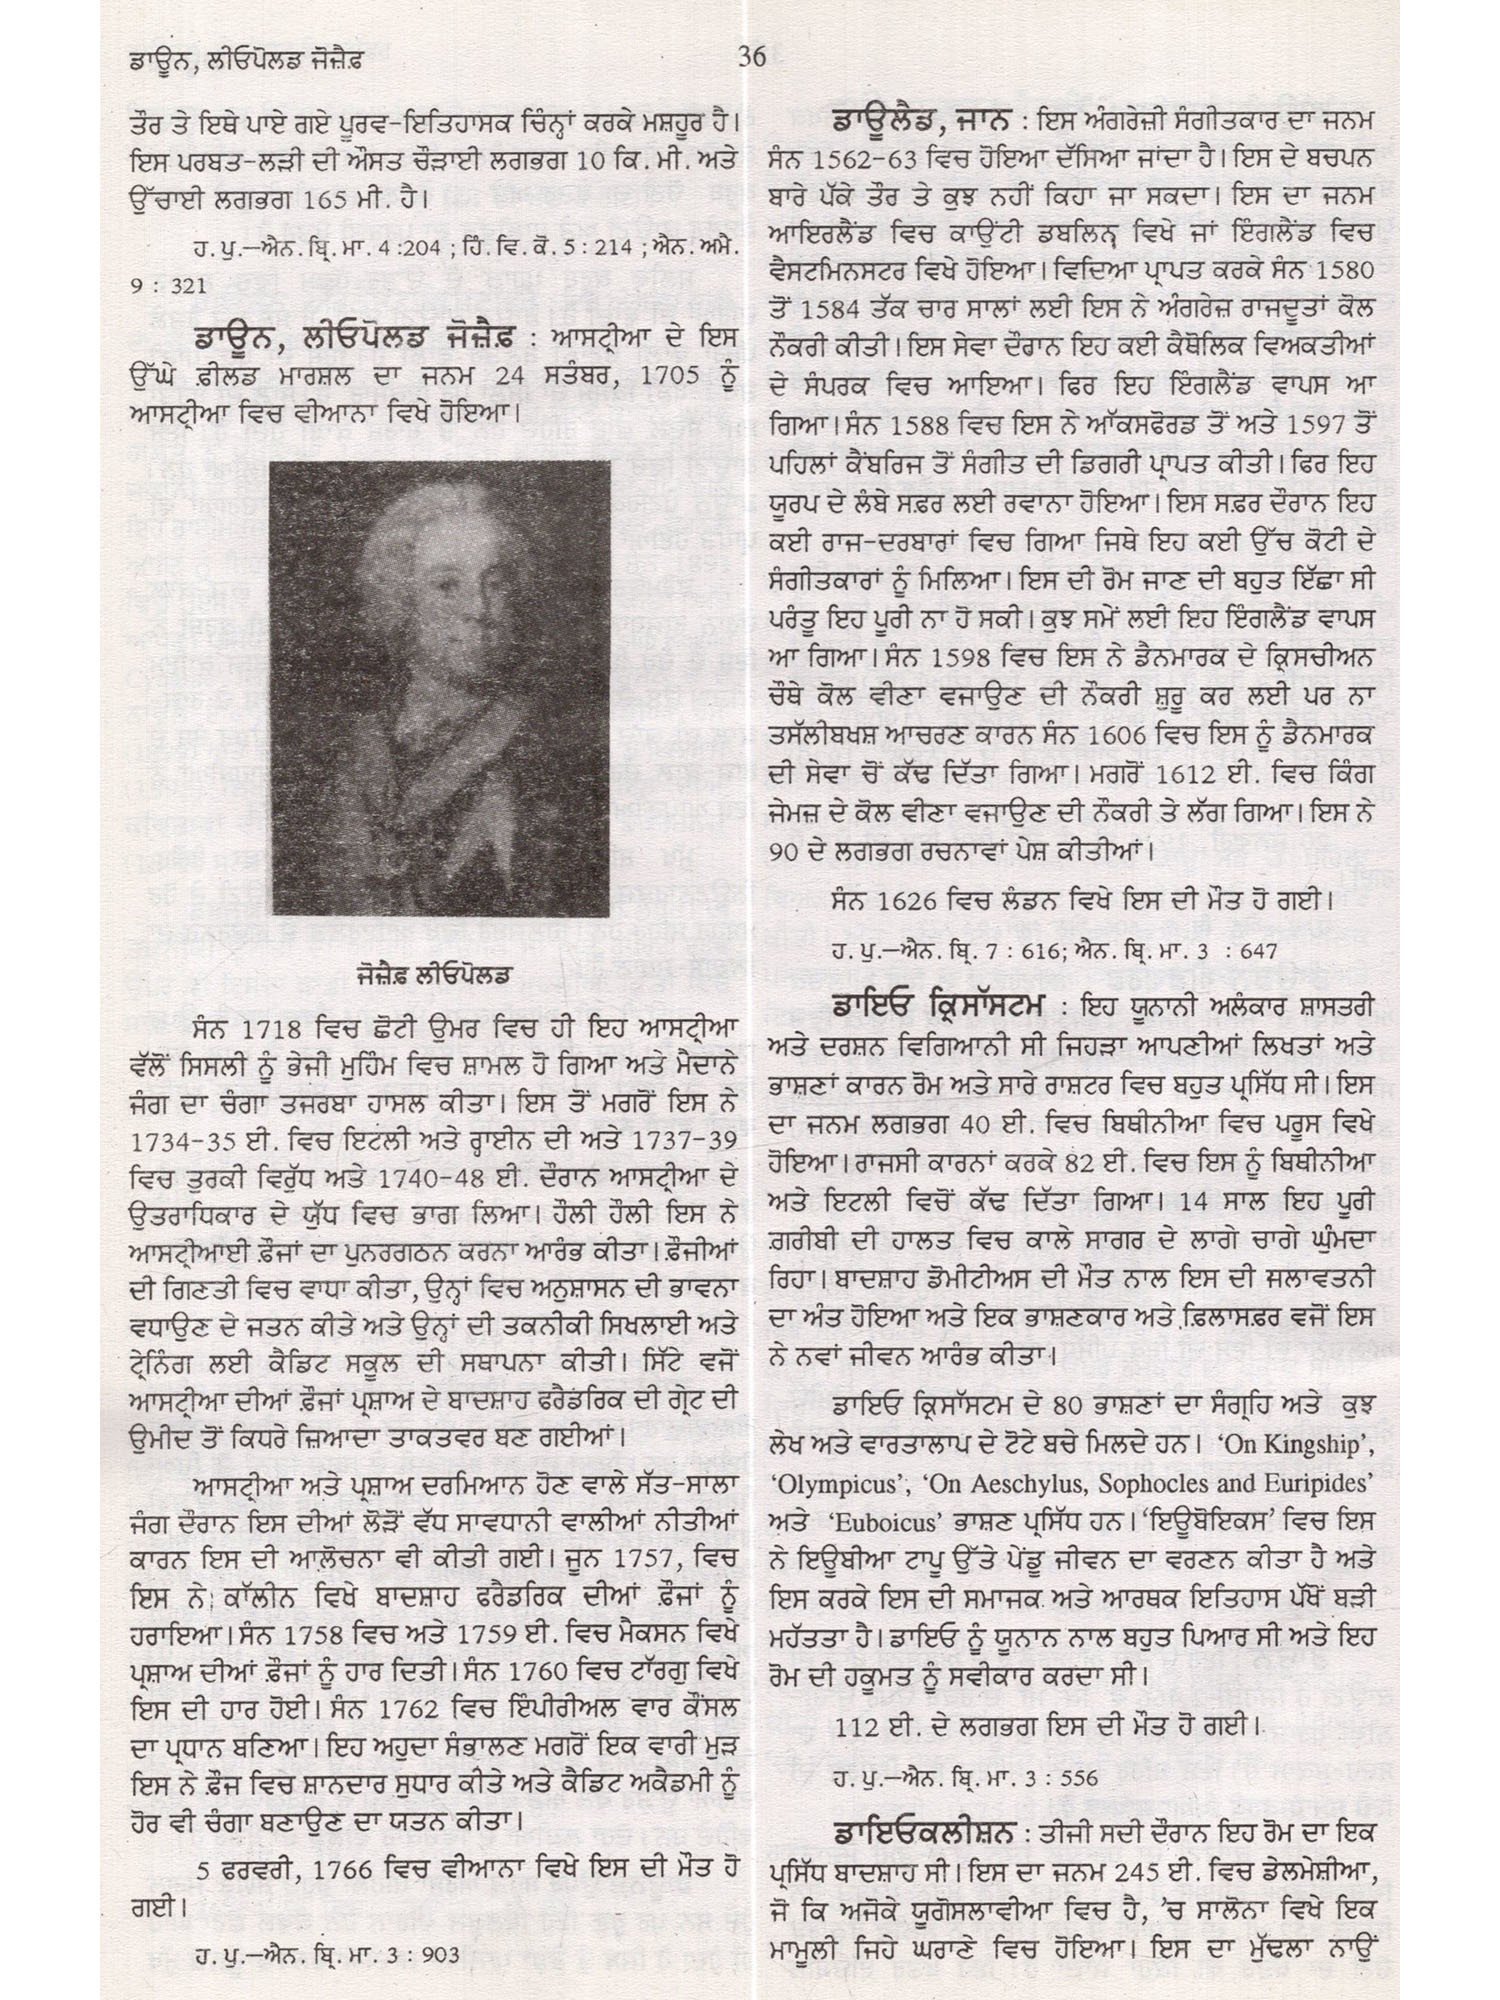 ਡਾਊਨ, ਲੀਓਪੋਲਡ ਜੋਜ਼ੈਫ਼
36
ਤੌਰ ਤੇ ਇਥੇ ਪਾਏ ਗਏ ਪੂਰਵ-ਇਤਿਹਾਸਕ ਚਿੰਨ੍ਹਾਂ ਕਰਕੇ ਮਸ਼ਹੂਰ ਹੈ।
ਇਸ ਪਰਬਤ-ਲੜੀ ਦੀ ਔਸਤ ਚੌੜਾਈ ਲਗਭਗ 10 ਕਿ. ਮੀ. ਅਤੇ
ਉੱਚਾਈ ਲਗਭਗ 165 ਮੀ. ਹੈ।
ਹ. ਪੁ.—ਐਨ. ਬ੍ਰਿ. ਮਾ. 4 :204 ; ਹਿੰ. ਵਿ. ਕੋ. 5 : 214 ; ਐਨ. ਅਮੈ.
9 : 321
ਡਾਊਨ, ਲੀਓਪੋਲਡ ਜੋਜ਼ੈਫ਼ : ਆਸਟ੍ਰੀਆ ਦੇ ਇਸ
ਉੱਘੇ ਫ਼ੀਲਡ ਮਾਰਸ਼ਲ ਦਾ ਜਨਮ 24 ਸਤੰਬਰ, 1705 ਨੂੰ
ਆਸਟ੍ਰੀਆ ਵਿਚ ਵੀਆਨਾ ਵਿਖੇ ਹੋਇਆ।
ਜੋਜ਼ੈਫ਼ ਲੀਓਪੋਲਡ
ਸੰਨ 1718 ਵਿਚ ਛੋਟੀ ਉਮਰ ਵਿਚ ਹੀ ਇਹ ਆਸਟ੍ਰੀਆ
ਵੱਲੋਂ ਸਿਸਲੀ ਨੂੰ ਭੇਜੀ ਮੁਹਿੰਮ ਵਿਚ ਸ਼ਾਮਲ ਹੋ ਗਿਆ ਅਤੇ ਮੈਦਾਨੇ
ਜੰਗ ਦਾ ਚੰਗਾ ਤਜਰਬਾ ਹਾਸਲ ਕੀਤਾ। ਇਸ ਤੋਂ ਮਗਰੋਂ ਇਸ ਨੇ
1734-35 ਈ. ਵਿਚ ਇਟਲੀ ਅਤੇ ਰ੍ਹਾਈਨ ਦੀ ਅਤੇ 1737-39
ਵਿਚ ਤੁਰਕੀ ਵਿਰੁੱਧ ਅਤੇ 1740-48 ਈ. ਦੌਰਾਨ ਆਸਟ੍ਰੀਆ ਦੇ
ਉਤਰਾਧਿਕਾਰ ਦੇ ਯੁੱਧ ਵਿਚ ਭਾਗ ਲਿਆ। ਹੌਲੀ ਹੌਲੀ ਇਸ ਨੇ
ਆਸਟ੍ਰੀਆਈ ਫ਼ੌਜਾਂ ਦਾ ਪੁਨਰਗਠਨ ਕਰਨਾ ਆਰੰਭ ਕੀਤਾ। ਫ਼ੌਜੀਆਂ
ਦੀ ਗਿਣਤੀ ਵਿਚ ਵਾਧਾ ਕੀਤਾ, ਉਨ੍ਹਾਂ ਵਿਚ ਅਨੁਸ਼ਾਸਨ ਦੀ ਭਾਵਨਾ
ਵਧਾਉਣ ਦੇ ਜਤਨ ਕੀਤੇ ਅਤੇ ਉਨ੍ਹਾਂ ਦੀ ਤਕਨੀਕੀ ਸਿਖਲਾਈ ਅਤੇ
ਟ੍ਰੇਨਿੰਗ ਲਈ ਕੈਡਿਟ ਸਕੂਲ ਦੀ ਸਥਾਪਨਾ ਕੀਤੀ। ਸਿੱਟੇ ਵਜੋਂ
ਆਸਟ੍ਰੀਆ ਦੀਆਂ ਫ਼ੌਜਾਂ ਪ੍ਰਸ਼ਾਅ ਦੇ ਬਾਦਸ਼ਾਹ ਫਰੈਡਰਿਕ ਦੀ ਗ੍ਰੇਟ ਦੀ
ਉਮੀਦ ਤੋਂ ਕਿਧਰੇ ਜ਼ਿਆਦਾ ਤਾਕਤਵਰ ਬਣ ਗਈਆਂ।
ਆਸਟ੍ਰੀਆ ਅਤੇ ਪ੍ਰਸ਼ਾਅ ਦਰਮਿਆਨ ਹੋਣ ਵਾਲੇ ਸੱਤ-ਸਾਲਾ
ਜੰਗ ਦੌਰਾਨ ਇਸ ਦੀਆਂ ਲੋੜੋਂ ਵੱਧ ਸਾਵਧਾਨੀ ਵਾਲੀਆਂ ਨੀਤੀਆਂ
ਕਾਰਨ ਇਸ ਦੀ ਆਲੋਚਨਾ ਵੀ ਕੀਤੀ ਗਈ। ਜੂਨ 1757, ਵਿਚ
ਇਸ ਨੇ ਕਾੱਲੀਨ ਵਿਖੇ ਬਾਦਸ਼ਾਹ ਫਰੈਡਰਿਕ ਦੀਆਂ ਫ਼ੌਜਾਂ ਨੂੰ
ਹਰਾਇਆ। ਸੰਨ 1758 ਵਿਚ ਅਤੇ 1759 ਈ. ਵਿਚ ਮੈਕਸਨ ਵਿਖੇ
ਪ੍ਰਸ਼ਾਅ ਦੀਆਂ ਫ਼ੌਜਾਂ ਨੂੰ ਹਾਰ ਦਿਤੀ। ਸੰਨ 1760 ਵਿਚ ਟਾੱਰਗੁ ਵਿਖੇ
ਇਸ ਦੀ ਹਾਰ ਹੋਈ। ਸੰਨ 1762 ਵਿਚ ਇੰਪੀਰੀਅਲ ਵਾਰ ਕੌਂਸਲ
ਦਾ ਪ੍ਰਧਾਨ ਬਣਿਆ। ਇਹ ਅਹੁਦਾ ਸੰਭਾਲਣ ਮਗਰੋਂ ਇਕ ਵਾਰੀ ਮੁੜ
ਇਸ ਨੇ ਫ਼ੌਜ ਵਿਚ ਸ਼ਾਨਦਾਰ ਸੁਧਾਰ ਕੀਤੇ ਅਤੇ ਕੈਡਿਟ ਅਕੈਡਮੀ ਨੂੰ
ਹੋਰ ਵੀ ਚੰਗਾ ਬਣਾਉਣ ਦਾ ਯਤਨ ਕੀਤਾ।
5 ਫਰਵਰੀ, 1766 ਵਿਚ ਵੀਆਨਾ ਵਿਖੇ ਇਸ ਦੀ ਮੌਤ ਹੋ
ਗਈ।
ਹ. ਪੁ.—ਐਨ. ਬ੍ਰਿ. ਮਾ. 3 : 903
ਡਾਊਲੈਂਡ, ਜਾਨ : ਇਸ ਅੰਗਰੇਜ਼ੀ ਸੰਗੀਤਕਾਰ ਦਾ ਜਨਮ
ਸੰਨ 1562-63 ਵਿਚ ਹੋਇਆ ਦੱਸਿਆ ਜਾਂਦਾ ਹੈ। ਇਸ ਦੇ ਬਚਪਨ
ਬਾਰੇ ਪੱਕੇ ਤੌਰ ਤੇ ਕੁਝ ਨਹੀਂ ਕਿਹਾ ਜਾ ਸਕਦਾ। ਇਸ ਦਾ ਜਨਮ
ਆਇਰਲੈਂਡ ਵਿਚ ਕਾਉਂਟੀ ਡਬਲਿਨ੍ਹ ਵਿਖੇ ਜਾਂ ਇੰਗਲੈਂਡ ਵਿਚ
ਵੈਸਟਮਿਨਸਟਰ ਵਿਖੇ ਹੋਇਆ। ਵਿਦਿਆ ਪ੍ਰਾਪਤ ਕਰਕੇ ਸੰਨ 1580
ਤੋਂ 1584 ਤੱਕ ਚਾਰ ਸਾਲਾਂ ਲਈ ਇਸ ਨੇ ਅੰਗਰੇਜ਼ ਰਾਜਦੂਤਾਂ ਕੋਲ
ਨੌਕਰੀ ਕੀਤੀ। ਇਸ ਸੇਵਾ ਦੌਰਾਨ ਇਹ ਕਈ ਕੈਥੋਲਿਕ ਵਿਅਕਤੀਆਂ
ਦੇ ਸੰਪਰਕ ਵਿਚ ਆਇਆ। ਫਿਰ ਇਹ ਇੰਗਲੈਂਡ ਵਾਪਸ ਆ
ਗਿਆ। ਸੰਨ 1588 ਵਿਚ ਇਸ ਨੇ ਆੱਕਸਫੋਰਡ ਤੋਂ ਅਤੇ 1597 ਤੋਂ
ਪਹਿਲਾਂ ਕੈਂਬਰਿਜ ਤੋਂ ਸੰਗੀਤ ਦੀ ਡਿਗਰੀ ਪ੍ਰਾਪਤ ਕੀਤੀ। ਫਿਰ ਇਹ
ਯੂਰਪ ਦੇ ਲੰਬੇ ਸਫ਼ਰ ਲਈ ਰਵਾਨਾ ਹੋਇਆ। ਇਸ ਸਫ਼ਰ ਦੌਰਾਨ ਇਹ
ਕਈ ਰਾਜ-ਦਰਬਾਰਾਂ ਵਿਚ ਗਿਆ ਜਿਥੇ ਇਹ ਕਈ ਉੱਚ ਕੋਟੀ ਦੇ
ਸੰਗੀਤਕਾਰਾਂ ਨੂੰ ਮਿਲਿਆ। ਇਸ ਦੀ ਰੋਮ ਜਾਣ ਦੀ ਬਹੁਤ ਇੱਛਾ ਸੀ
ਪਰੰਤੂ ਇਹ ਪੂਰੀ ਨਾ ਹੋ ਸਕੀ। ਕੁਝ ਸਮੇਂ ਲਈ ਇਹ ਇੰਗਲੈਂਡ ਵਾਪਸ
ਆ ਗਿਆ। ਸੰਨ 1598 ਵਿਚ ਇਸ ਨੇ ਡੈਨਮਾਰਕ ਦੇ ਕ੍ਰਿਸਚੀਅਨ
ਚੌਥੇ ਕੋਲ ਵੀਣਾ ਵਜਾਉਣ ਦੀ ਨੌਕਰੀ ਸ਼ੁਰੂ ਕਰ ਲਈ ਪਰ ਨਾ
ਤਸੱਲੀਬਖਸ਼ ਆਚਰਣ ਕਾਰਨ ਸੰਨ 1606 ਵਿਚ ਇਸ ਨੂੰ ਡੈਨਮਾਰਕ
ਦੀ ਸੇਵਾ ਚੋਂ ਕੱਢ ਦਿੱਤਾ ਗਿਆ। ਮਗਰੋਂ 1612 ਈ. ਵਿਚ ਕਿੰਗ
ਜੇਮਜ਼ ਦੇ ਕੋਲ ਵੀਣਾ ਵਜਾਉਣ ਦੀ ਨੌਕਰੀ ਤੇ ਲੱਗ ਗਿਆ। ਇਸ ਨੇ
90 ਦੇ ਲਗਭਗ ਰਚਨਾਵਾਂ ਪੇਸ਼ ਕੀਤੀਆਂ।
ਸੰਨ 1626 ਵਿਚ ਲੰਡਨ ਵਿਖੇ ਇਸ ਦੀ ਮੌਤ ਹੋ ਗਈ।
ਹ. ਪੁ.—ਐਨ. ਬ੍ਰਿ. 7 : 616; ਐਨ. ਬ੍ਰਿ. ਮਾ. 3 : 647
ਡਾਇਓ ਕ੍ਰਿਸਾੱਸਟਮ : ਇਹ ਯੂਨਾਨੀ ਅਲੰਕਾਰ ਸ਼ਾਸਤਰੀ
ਅਤੇ ਦਰਸ਼ਨ ਵਿਗਿਆਨੀ ਸੀ ਜਿਹੜਾ ਆਪਣੀਆਂ ਲਿਖਤਾਂ ਅਤੇ
ਭਾਸ਼ਣਾਂ ਕਾਰਨ ਰੋਮ ਅਤੇ ਸਾਰੇ ਰਾਸ਼ਟਰ ਵਿਚ ਬਹੁਤ ਪ੍ਰਸਿੱਧ ਸੀ। ਇਸ
ਦਾ ਜਨਮ ਲਗਭਗ 40 ਈ. ਵਿਚ ਬਿਥੀਨੀਆ ਵਿਚ ਪਰੂਸ ਵਿਖੇ
ਹੋਇਆ। ਰਾਜਸੀ ਕਾਰਨਾਂ ਕਰਕੇ 82 ਈ. ਵਿਚ ਇਸ ਨੂੰ ਬਿਥੀਨੀਆ
ਅਤੇ ਇਟਲੀ ਵਿਚੋਂ ਕੱਢ ਦਿੱਤਾ ਗਿਆ। 14 ਸਾਲ ਇਹ ਪੂਰੀ
ਗ਼ਰੀਬੀ ਦੀ ਹਾਲਤ ਵਿਚ ਕਾਲੇ ਸਾਗਰ ਦੇ ਲਾਗੇ ਚਾਗੇ ਘੁੰਮਦਾ
ਰਿਹਾ। ਬਾਦਸ਼ਾਹ ਡੋਮੀਟੀਅਸ ਦੀ ਮੌਤ ਨਾਲ ਇਸ ਦੀ ਜਲਾਵਤਨੀ
ਦਾ ਅੰਤ ਹੋਇਆ ਅਤੇ ਇਕ ਭਾਸ਼ਣਕਾਰ ਅਤੇ ਫ਼ਿਲਾਸਫ਼ਰ ਵਜੋਂ ਇਸ
ਨੇ ਨਵਾਂ ਜੀਵਨ ਆਰੰਭ ਕੀਤਾ।
ਡਾਇਓ ਕ੍ਰਿਸਾੱਸਟਮ ਦੇ 80 ਭਾਸ਼ਣਾਂ ਦਾ ਸੰਗ੍ਰਹਿ ਅਤੇ ਕੁਝ
ਲੇਖ ਅਤੇ ਵਾਰਤਾਲਾਪ ਦੇ ਟੋਟੇ ਬਚੇ ਮਿਲਦੇ ਹਨ। ‘On Kingship’,
‘Olympicus’, ‘On Aeschylus, Sophocles and Euripides’
ਅਤੇ ‘Euboicus’ ਭਾਸ਼ਣ ਪ੍ਰਸਿੱਧ ਹਨ। ‘ਇਊਬੋਇਕਸ’ ਵਿਚ ਇਸ
ਨੇ ਇਊਬੀਆ ਟਾਪੂ ਉੱਤੇ ਪੇਂਡੂ ਜੀਵਨ ਦਾ ਵਰਣਨ ਕੀਤਾ ਹੈ ਅਤੇ
ਇਸ ਕਰਕੇ ਇਸ ਦੀ ਸਮਾਜਕ ਅਤੇ ਆਰਥਕ ਇਤਿਹਾਸ ਪੱਖੋਂ ਬੜੀ
ਮਹੱਤਤਾ ਹੈ। ਡਾਇਓ ਨੂੰ ਯੂਨਾਨ ਨਾਲ ਬਹੁਤ ਪਿਆਰ ਸੀ ਅਤੇ ਇਹ
ਰੋਮ ਦੀ ਹਕੂਮਤ ਨੂੰ ਸਵੀਕਾਰ ਕਰਦਾ ਸੀ।
112 ਈ. ਦੇ ਲਗਭਗ ਇਸ ਦੀ ਮੌਤ ਹੋ ਗਈ।
ਹ. ਪੁ.—ਐਨ. ਬ੍ਰਿ. ਮਾ. 3 : 556
ਡਾਇਓਕਲੀਸ਼ਨ : ਤੀਜੀ ਸਦੀ ਦੌਰਾਨ ਇਹ ਰੋਮ ਦਾ ਇਕ
ਪ੍ਰਸਿੱਧ ਬਾਦਸ਼ਾਹ ਸੀ। ਇਸ ਦਾ ਜਨਮ 245 ਈ. ਵਿਚ ਡੇਲਮੇਸ਼ੀਆ,
ਜੋ ਕਿ ਅਜੋਕੇ ਯੂਗੋਸਲਾਵੀਆ ਵਿਚ ਹੈ, ’ਚ ਸਾਲੋਨਾ ਵਿਖੇ ਇਕ
ਮਾਮੂਲੀ ਜਿਹੇ ਘਰਾਣੇ ਵਿਚ ਹੋਇਆ। ਇਸ ਦਾ ਮੁੱਢਲਾ ਨਾਉਂ